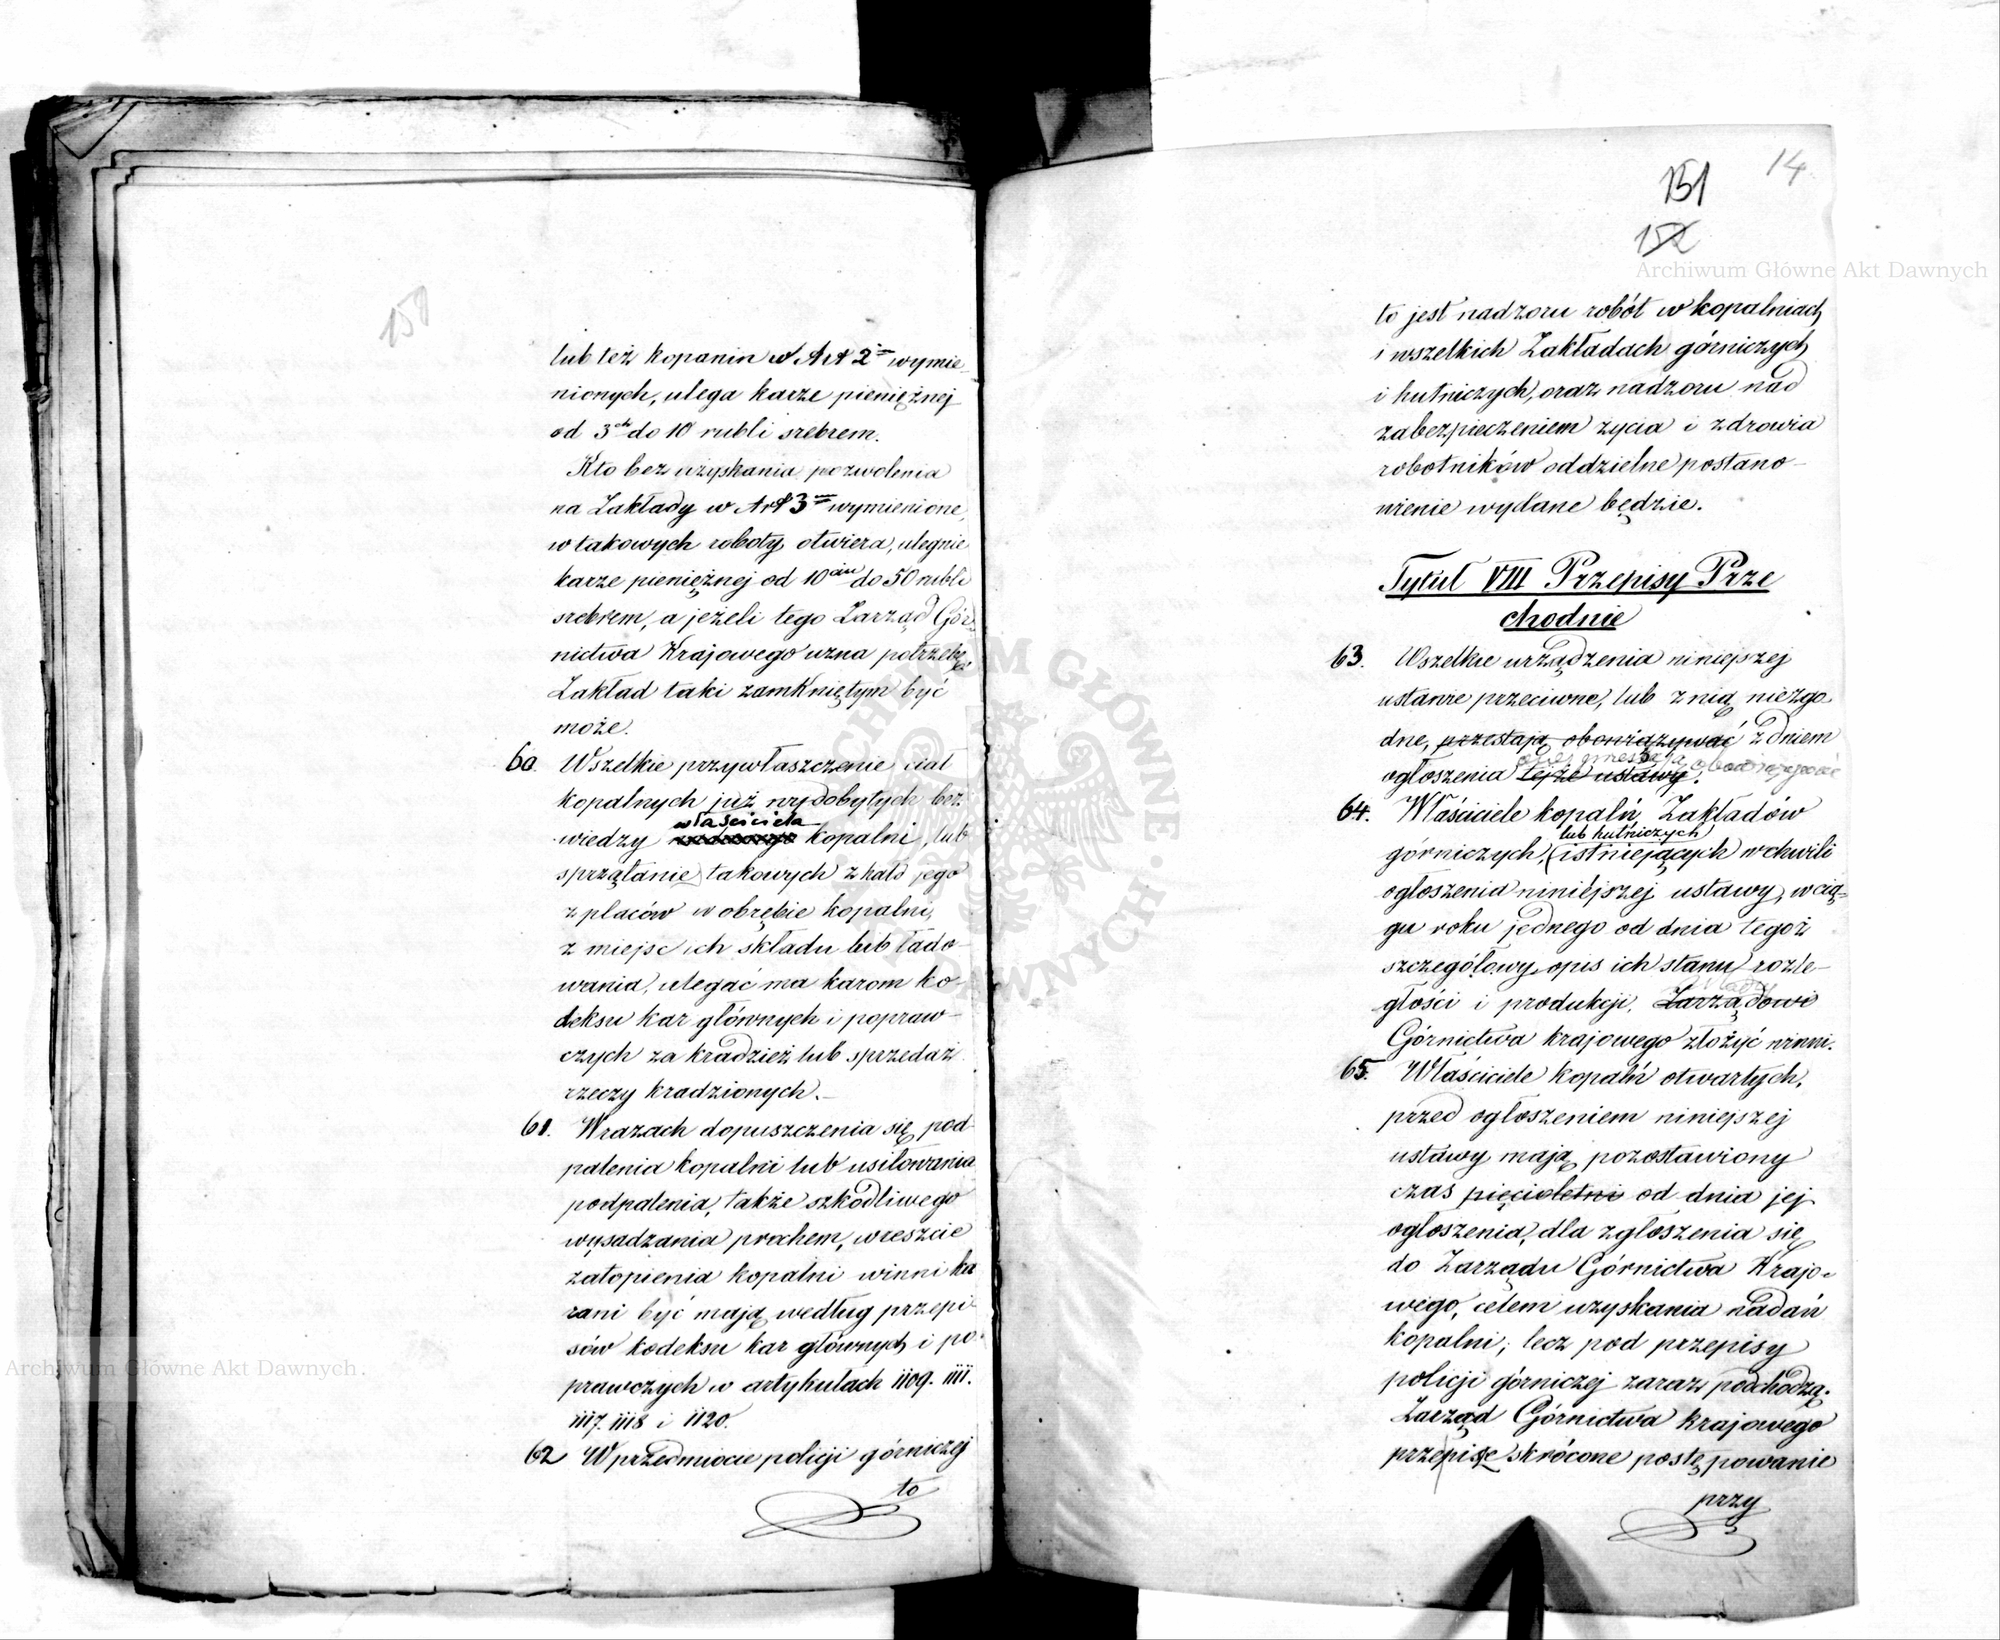 158
lub też kopanin w Art 2 wymie
nionych, ulega karze pieniężnej
od 3ch do 10 rubli srebrem.
Kto bez uzyskania pozwolenia
na Zakłady w Art 3 wymienione,
w takowych roboty otwiera, ulegnie
karze pieniężnej od 10ciu do 50 rubli
srebrem, a jeżeli tego Zarząd Gór
nictwa Krajowego uzna potrzebę
Zakład taki zamkniętym być
może.
60. Wszelkie przywłaszczenie ciał
kopalnych już wydobytych bez
właściciela
wiedzy kopalni, lub
sprzątanie takowych z hałd jego
z placów w obrębie kopalni,
z miejsc ich składu lub łado-
wania, ulegać ma karom ko-
deksu kar głównych i popraw-
czych za kradzież lub sprzedaż
rzeczy kradzionych.-
61. W razach dopuszczenia się pod-
palenia kopalni lub usiłowania
podpalenia, także szkodliwego
wysadzania prochem, wreszcie
zatopienia kopalni winni ka
rani być mają według przepi
sów kodeksu kar głównych i po-
prawczych w artykułach 1109. 1111.
1117. 1118 i 1120.
62 W przedmiocie policji górniczej
to
14
151
152
to jest nadzoru robót w kopalniach
i wszelkich Zakładach górniczych
i hutniczych, oraz nadzoru nad
zabezpieczeniem życia i zdrowia
robotników oddzielne postano-
wienie wydane będzie.
Tytuł VIII Przepisy Prze
chodnie
63. Wszelkie urządzenia niniejszej
ustawie przeciwne, lub z nią niezgo
dne, przestają obowiązywać z dniem
obowiązywać
ogłoszenia tejże ustawy.
64. Właściciele kopalń, Zakładów
lub hutniczych
górniczych, istniejących w chwili
ogłoszenia niniejszej ustawy, w cią-
gu roku jednego od dnia tegoż
szczegółowy opis ich stanu rozle-
Władzy
głości i produkcji, Zarządowi
Górnictwa krajowego złożyć winni.
65. Właściciele kopalń otwartych,
przed ogłoszeniem niniejszej
ustawy mają pozostawiony
czas pięcioletni od dnia jej
ogłoszenia, dla zgłoszenia się
do Zarządu Górnictwa Krajo-
wego, celem uzyskania nadań
kopalni; lecz pod przepisy
policji górniczej zaraz podchodzą.
Zarząd Górnictwa krajowego
przepisze skrócone postępowanie
przy
Archiwum Główne Akt Dawnych
Archiwum Główne Akt Dawnych
ARCHIWUM GŁÓWNE AKT DAWNYCH